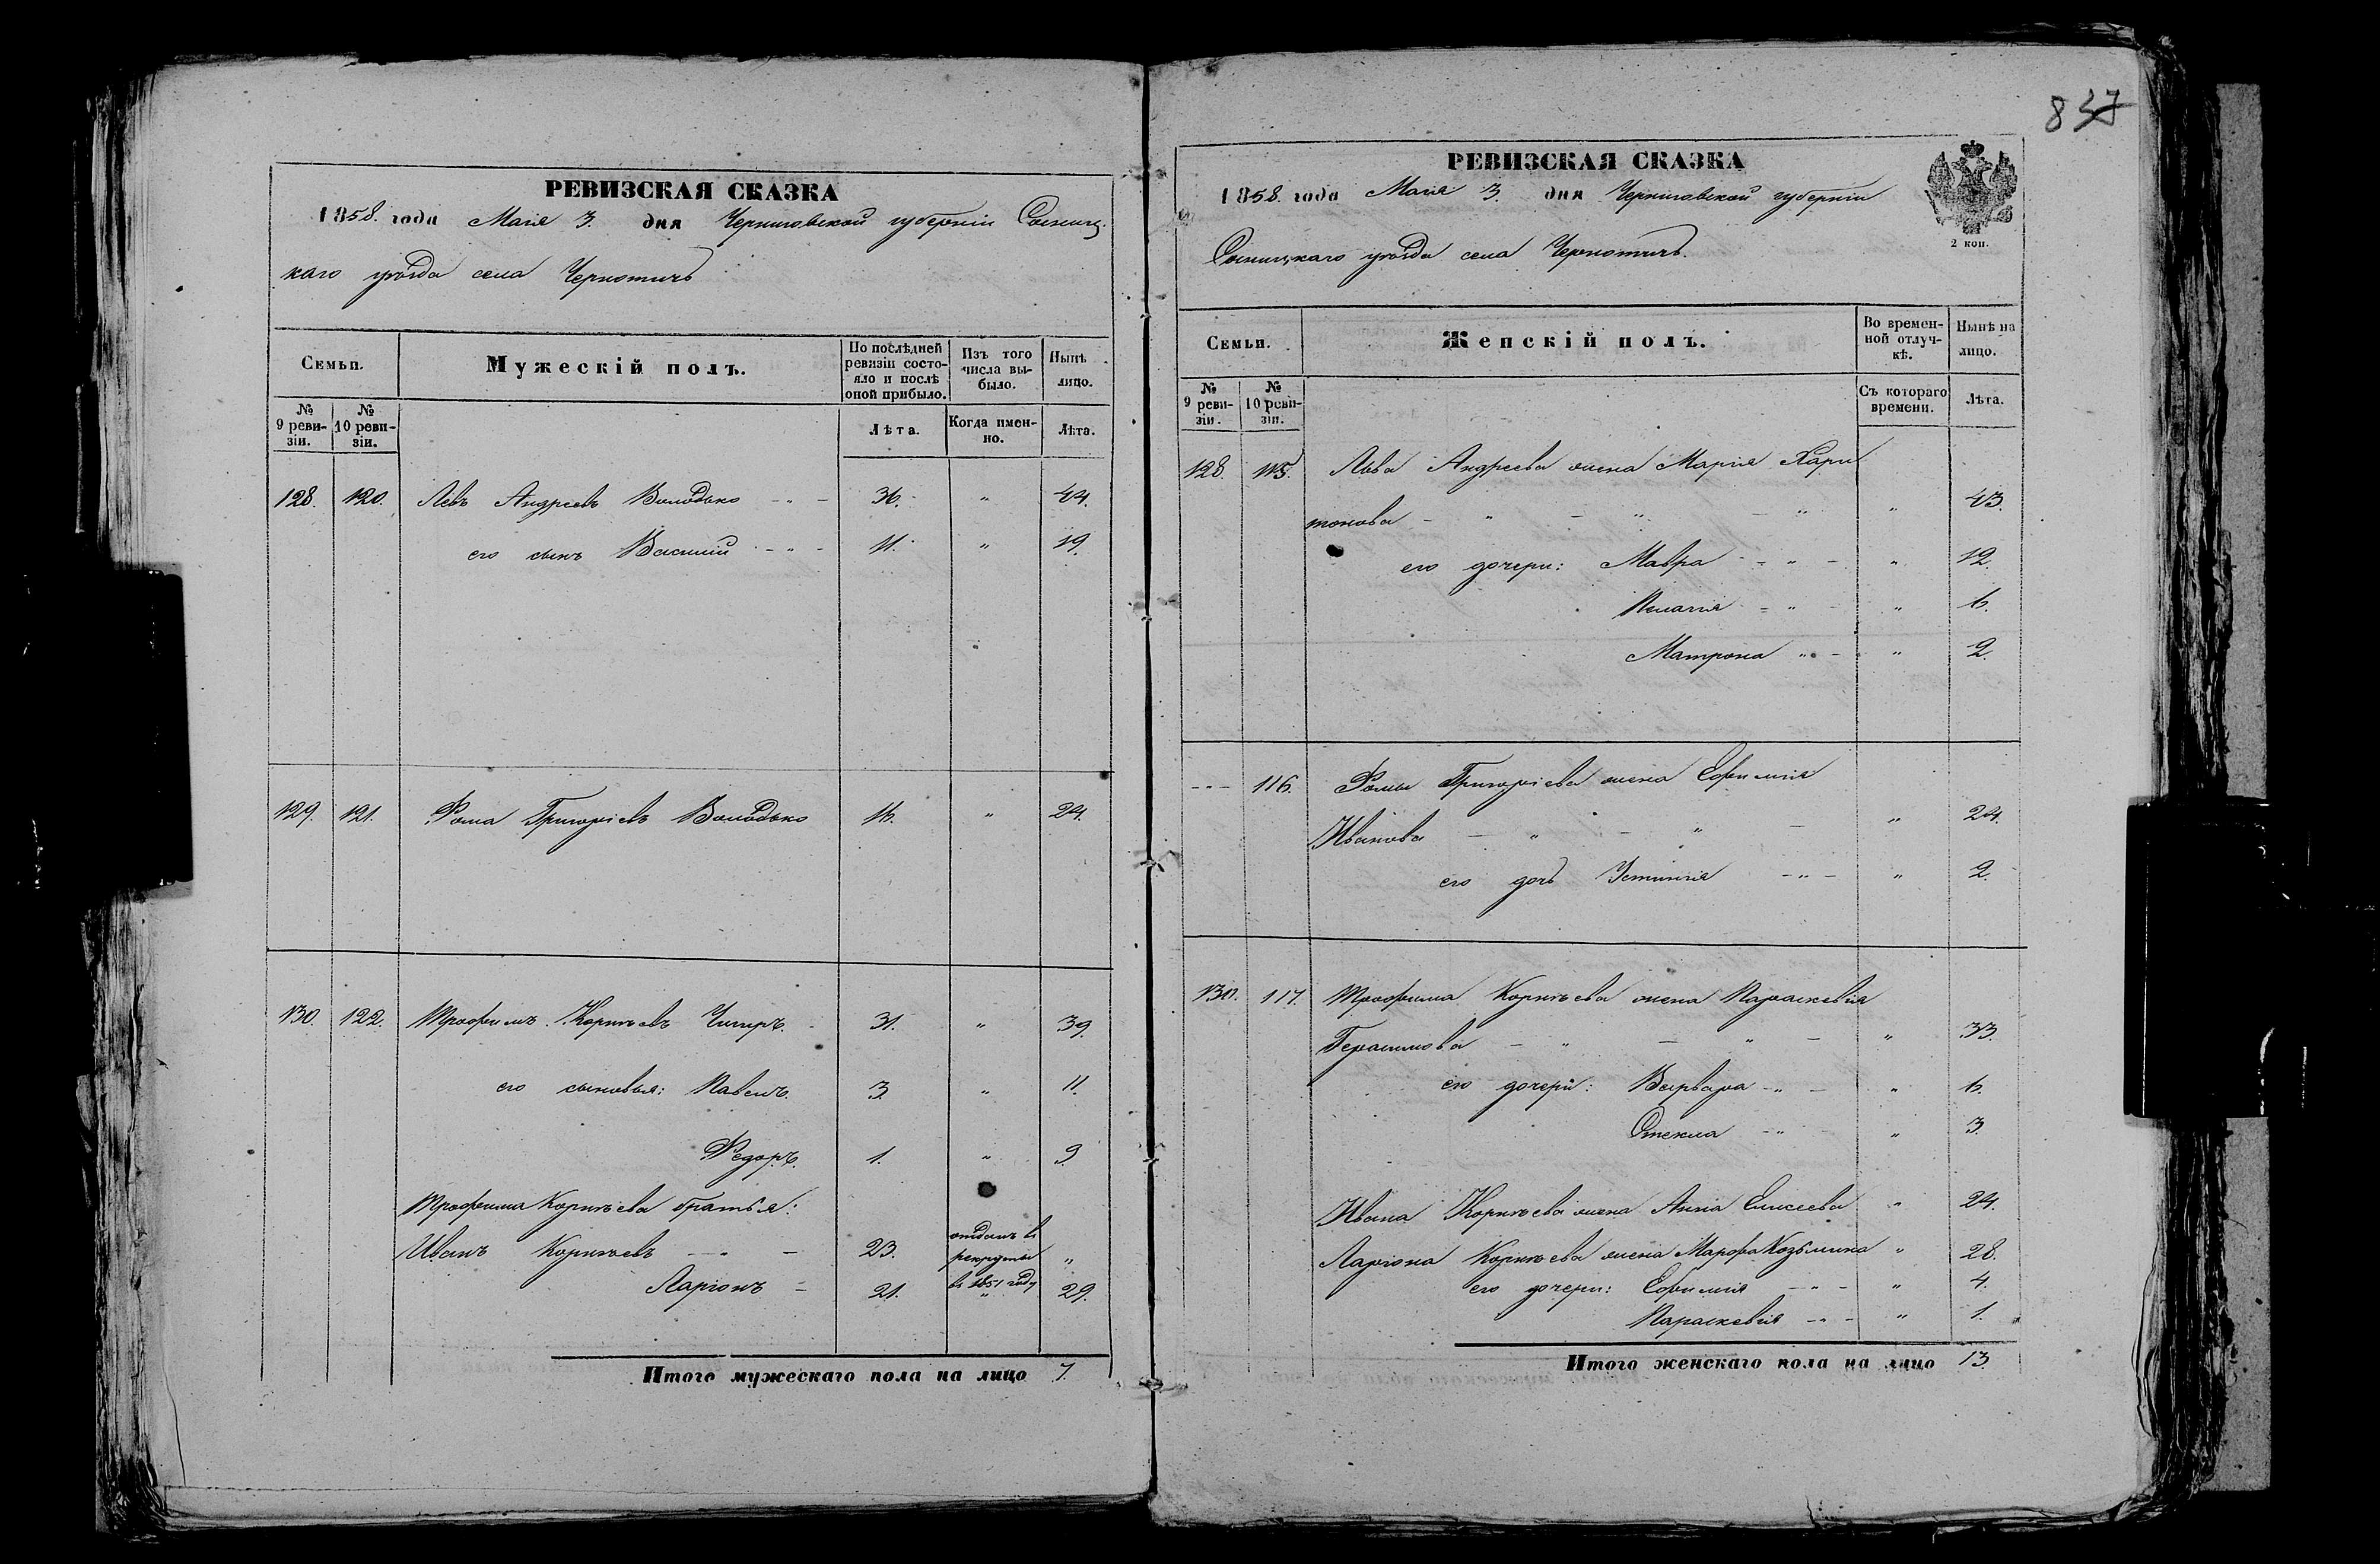 РЕВИЗСКАЯ СКАЗКА
1858. года Маія 3. дня Черниговской губерніи Сосниц-
каго уѣзда села Чернотичъ
Семьи.
Мужескій полъ.
По послѣдней ревизіи состояло и послѣ оной прибыло.
Изъ того числа выбыло.
Нынѣ лицо.
№ 9 ревизіи.
№ 10 ревизіи.
Лѣта.
Когда именно.
Лѣта.
128. 120. Левъ Андреевъ Володько - " - 36. " 44.
его сынъ Василій - " - 11. " 19.
129. 121. Фома Григоріевъ Володько 16. " 24.
130. 122. Трофимъ Корнѣевъ 31. " 39.
его сыновья: Павелъ 3. " 11.
Федоръ. 1. " 9.
Трофима Корнѣева братья:
Иванъ Корнѣевъ - " - 23. отданъ в рекруты в 1851 году "
Ларіонъ - 21. " 29.
Итого мужескаго пола на лицо 7.
837
РЕВИЗСКАЯ СКАЗКА
1858. года Маія 3. дня Черниговской губерніи
2 коп.
Сосницкаго уѣзда села Чернотичъ.
Семьи.
Женскій полъ.
Во временной отлучкѣ.
Нынѣ на лицо.
№ 9 ревизіи.
№ 10 ревизіи.
Съ котораго времени.
Лѣта.
128. 115. Льва Андреева жена Марія Хари
тонова - " - " - " " 43.
его дочери: Мавра - " - " 12.
Пелагія - " - " 6.
Матрона " - " 2.
--- 116. Фомы Григоріева жена Евфимія
Иванова - " - " - " 24.
его дочь Устинія - " - " 2.
130. 117. Трофима Корнѣева жена Параскевія
Герасимова - " - " - " 33.
его дочери: Варвара - " - " 6.
Фтекла - " - " 3.
Ивана Корнѣева жена Анна Елисеева " 24.
Ларіона Корнѣева жена Марфа Козьмина " 28.
его дочери: Евфимія - " - " 4.
Параскевія - " - " 1.
Итого женскаго пола на лицо 13